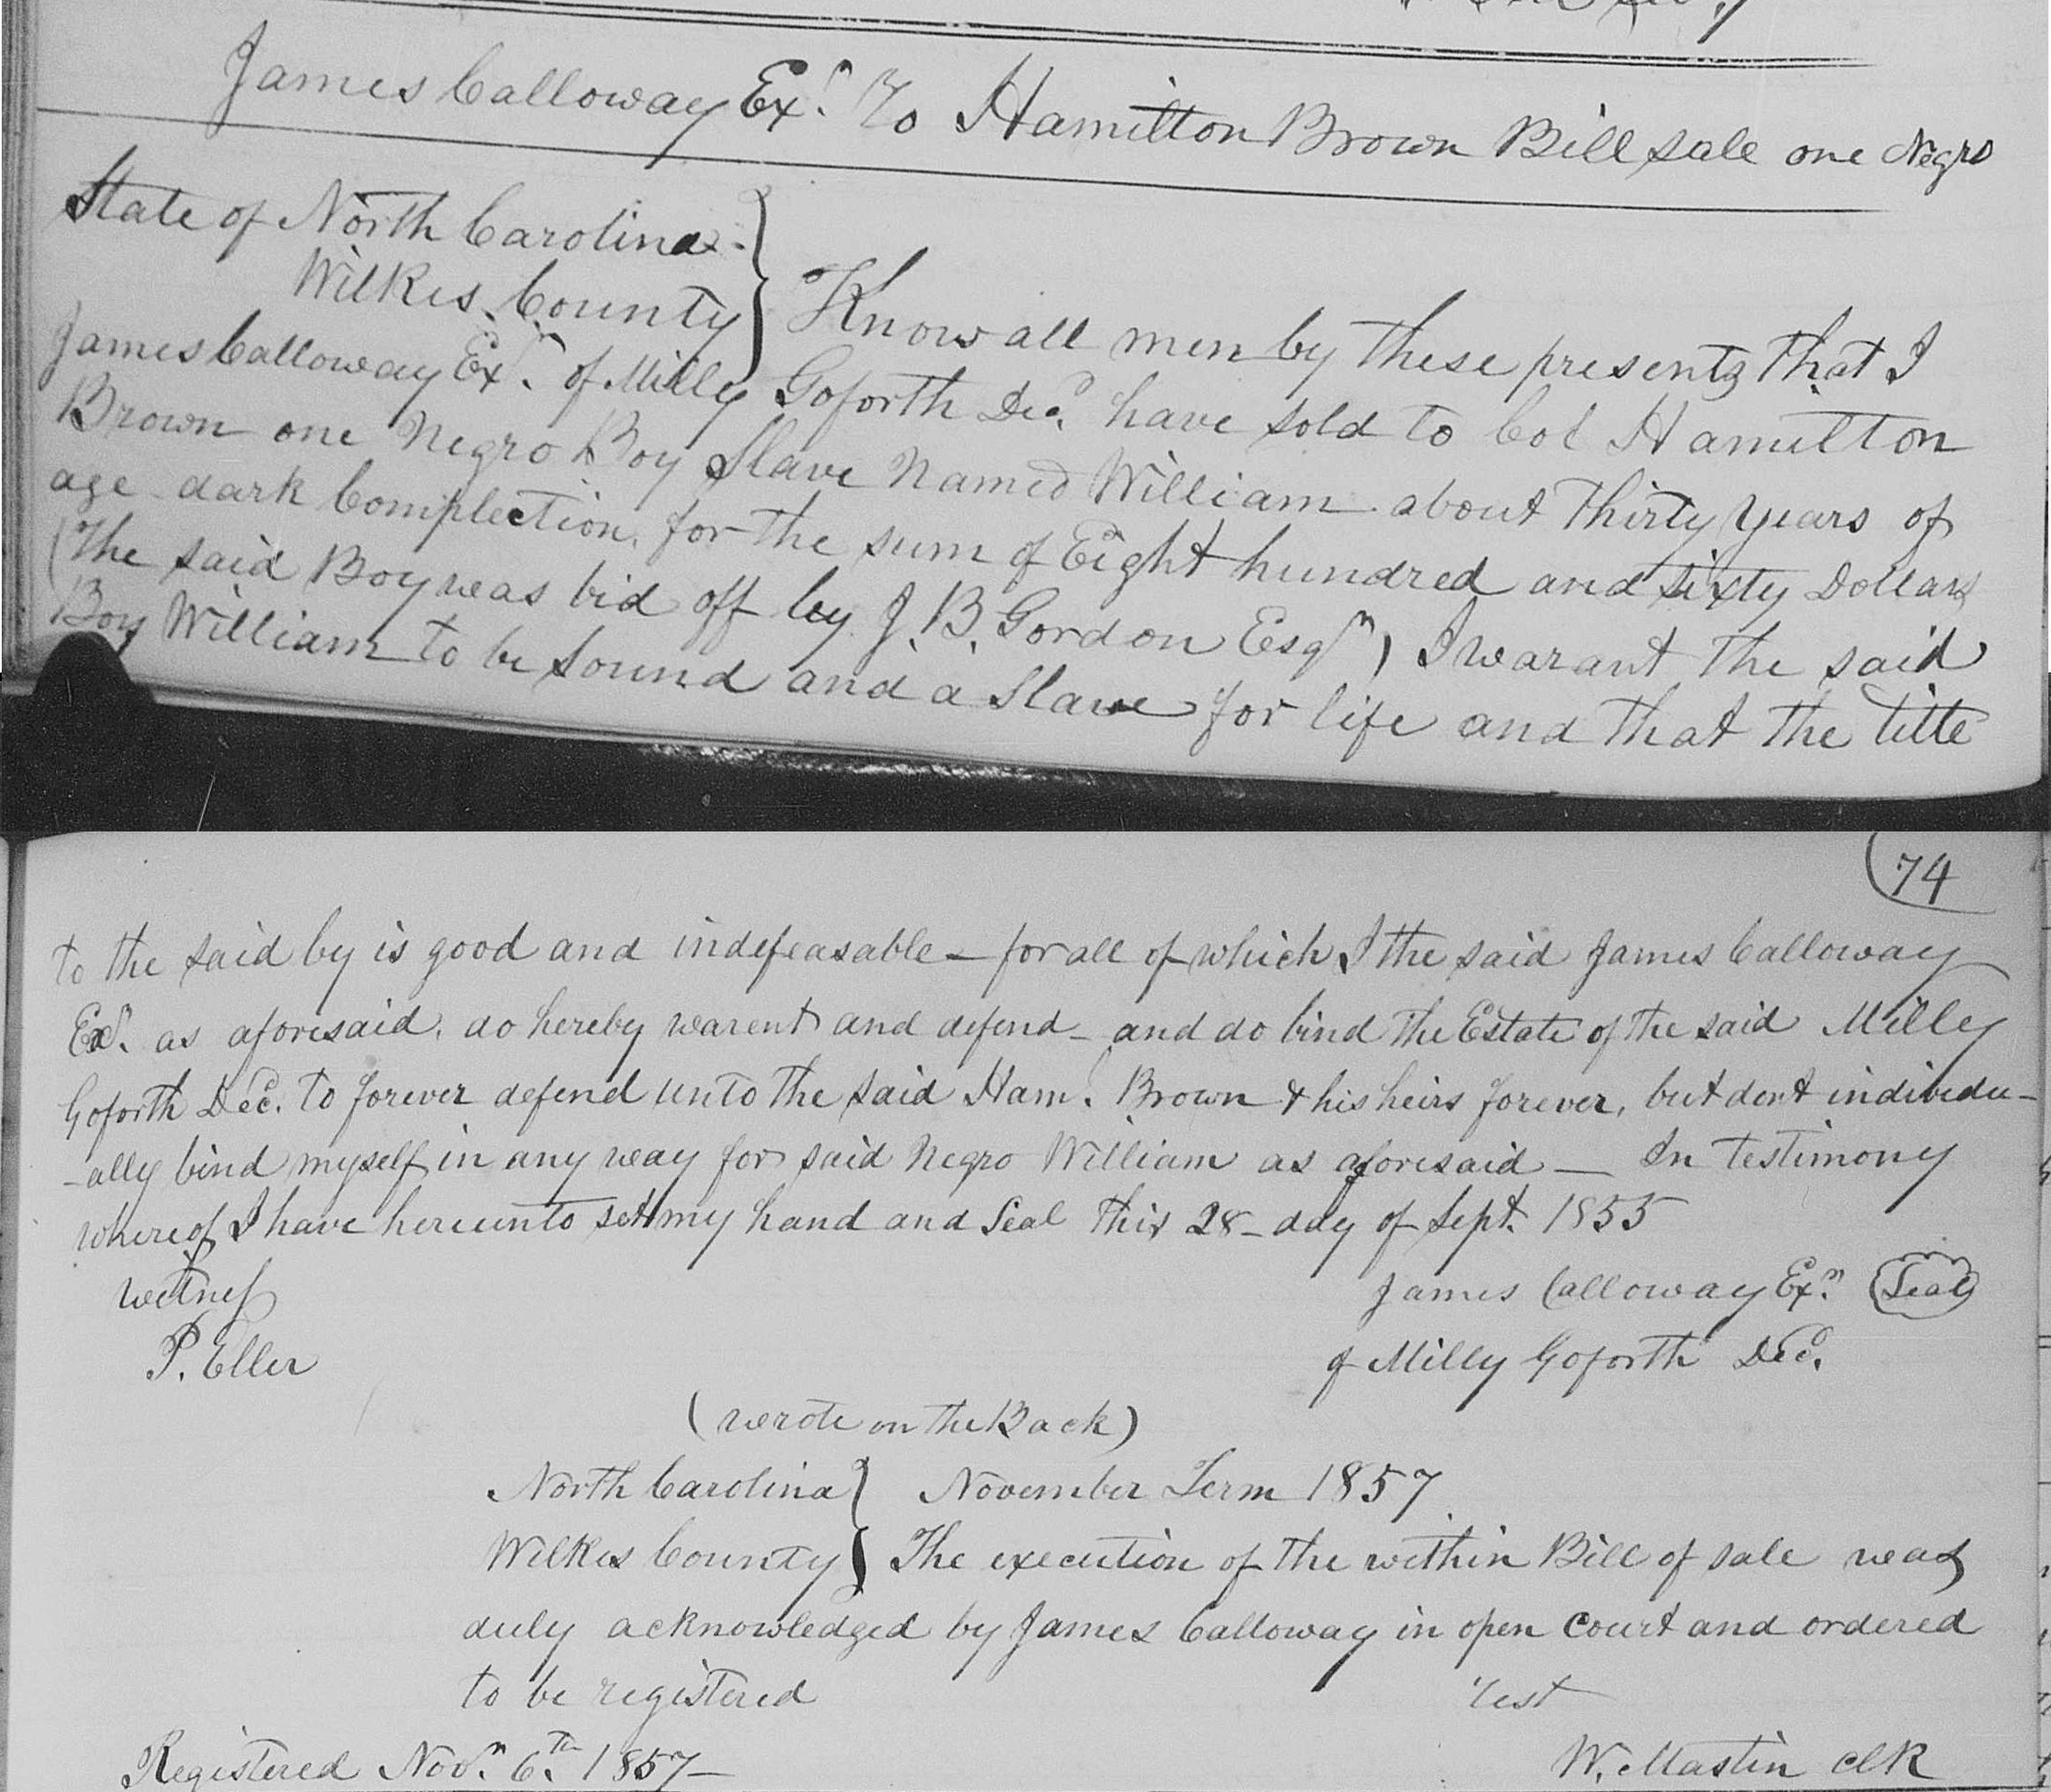 James Calloway Exr. To Hamilton Brown Bill sale one Negro
State of North Carolina }
Wilkes County } Know all men by these presents that I
James Calloway Exr. of Milly Goforth Decd. have sold to Col Hamilton
Brown one Negro Boy Slave Named William about thirty years of
age dark Complection, for the sum of Eight hundred and sixty Dollars
(The said Boy was bid off by J. B. Gordon Esqr) I warant the said
Boy William to be sound and a Slave for life and that the title
74
to the said by is good and indefeasable - for all of which I the said James Calloway
Exr. as aforesaid, do hereby warent and defend - and do bind the Estate of the said Milly
Goforth Decd. to forever defend unto the said Ham. Brown & his heirs forever, but dont individu-
-ally bind myself in any way for said Negro William as aforesaid — In testimony
whereof I have hereunto set my hand and Seal this 28 - day of Sept. 1855
Witness
James Calloway Exr. Seal
P. Eller
of Milly Goforth Decd.
(wrote on the Back)
North Carolina } November Term 1857
Wilkes County } The execution of the within Bill of sale was
duly acknowledged by James Calloway in open Court and ordered
to be registered Test
Registered Novr. 6th. 1857 - W. Mastin clk